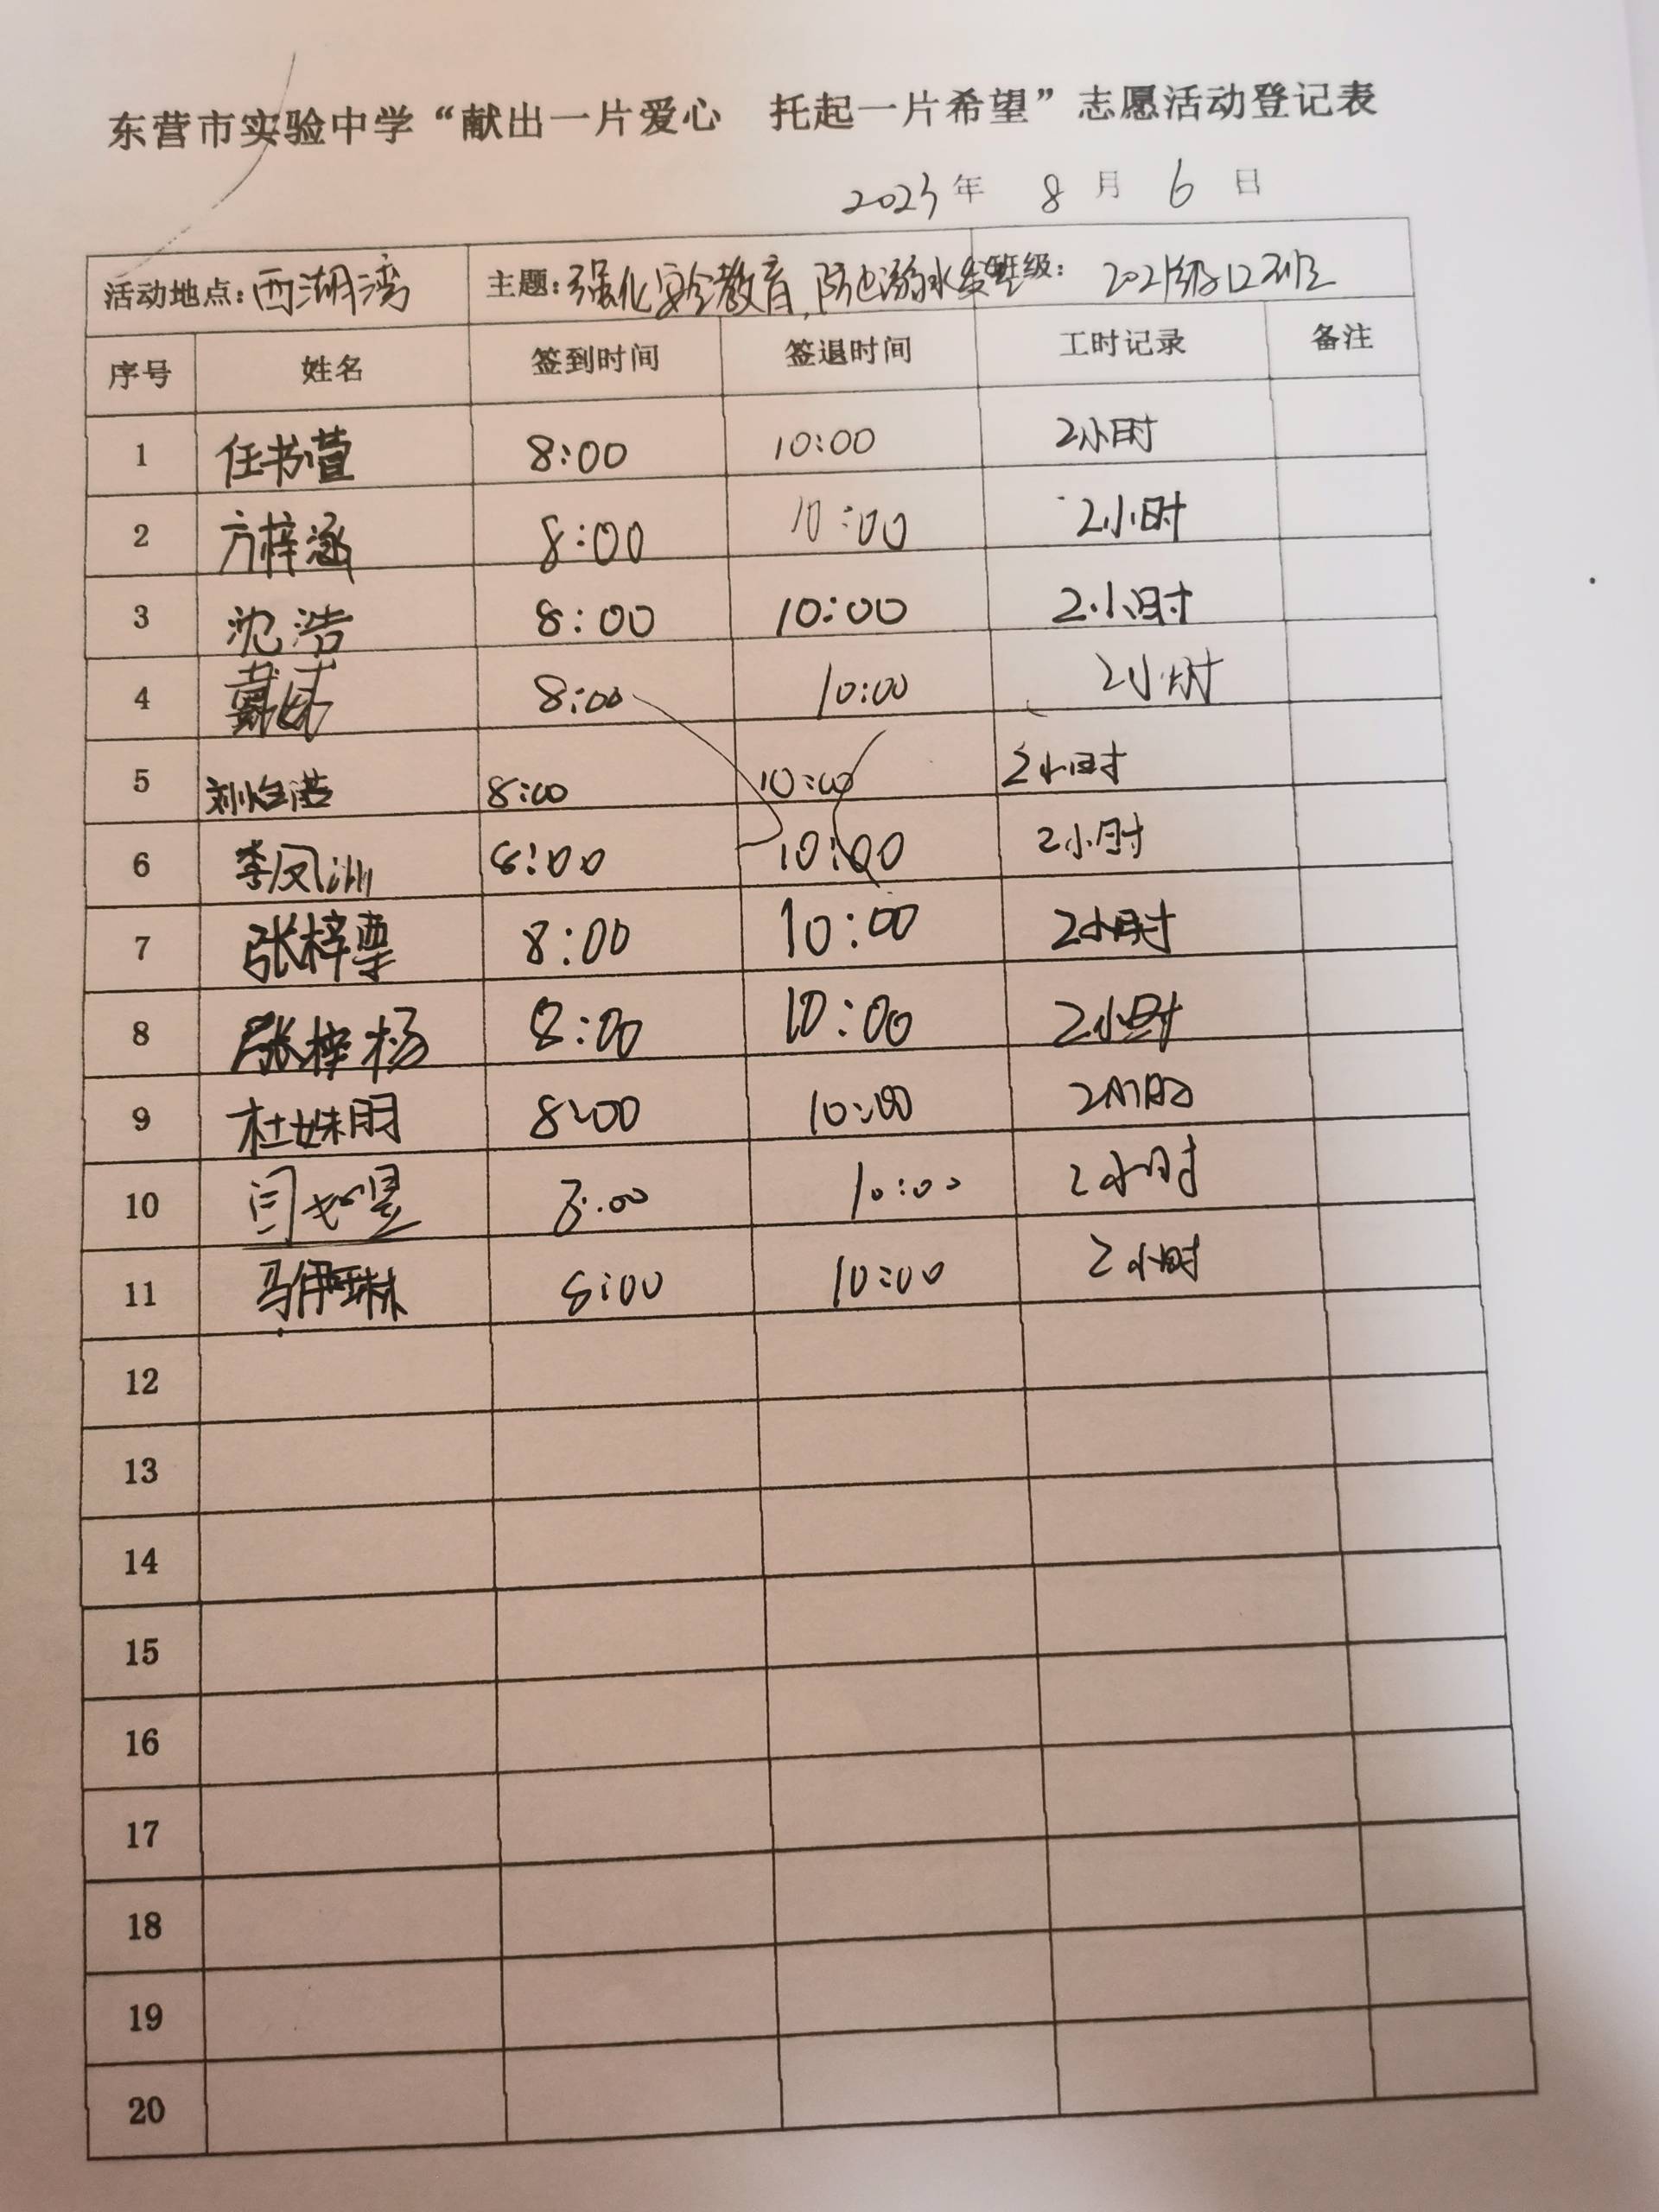 东营市实验中学“献出一片爱心 托起一片希望”志愿活动登记表
2023年 8月 6日
活动地点:西湖湾 主题:强化安全教育,防止溺水发生 班级: 2021级12班
序号 姓名 签到时间 签退时间 工时记录 备注
1 任书萱 8:00 10:00 2小时
2 方梓涵 8:00 10:00 2小时
3 沈浩 8:00 10:00 2小时
4 8:00 10:00 2小时
5 8:00 10:00 2小时
6 李凤洲 8:00 10:00 2小时
7 张梓栗 8:00 10:00 2小时
8 张梓杨 8:00 10:00 2小时
9 杜姝玥 8:00 10:00 2小时
10 8:00 10:00 2小时
11 马伊琳 8:00 10:00 2小时
12
13
14
15
16
17
18
19
20